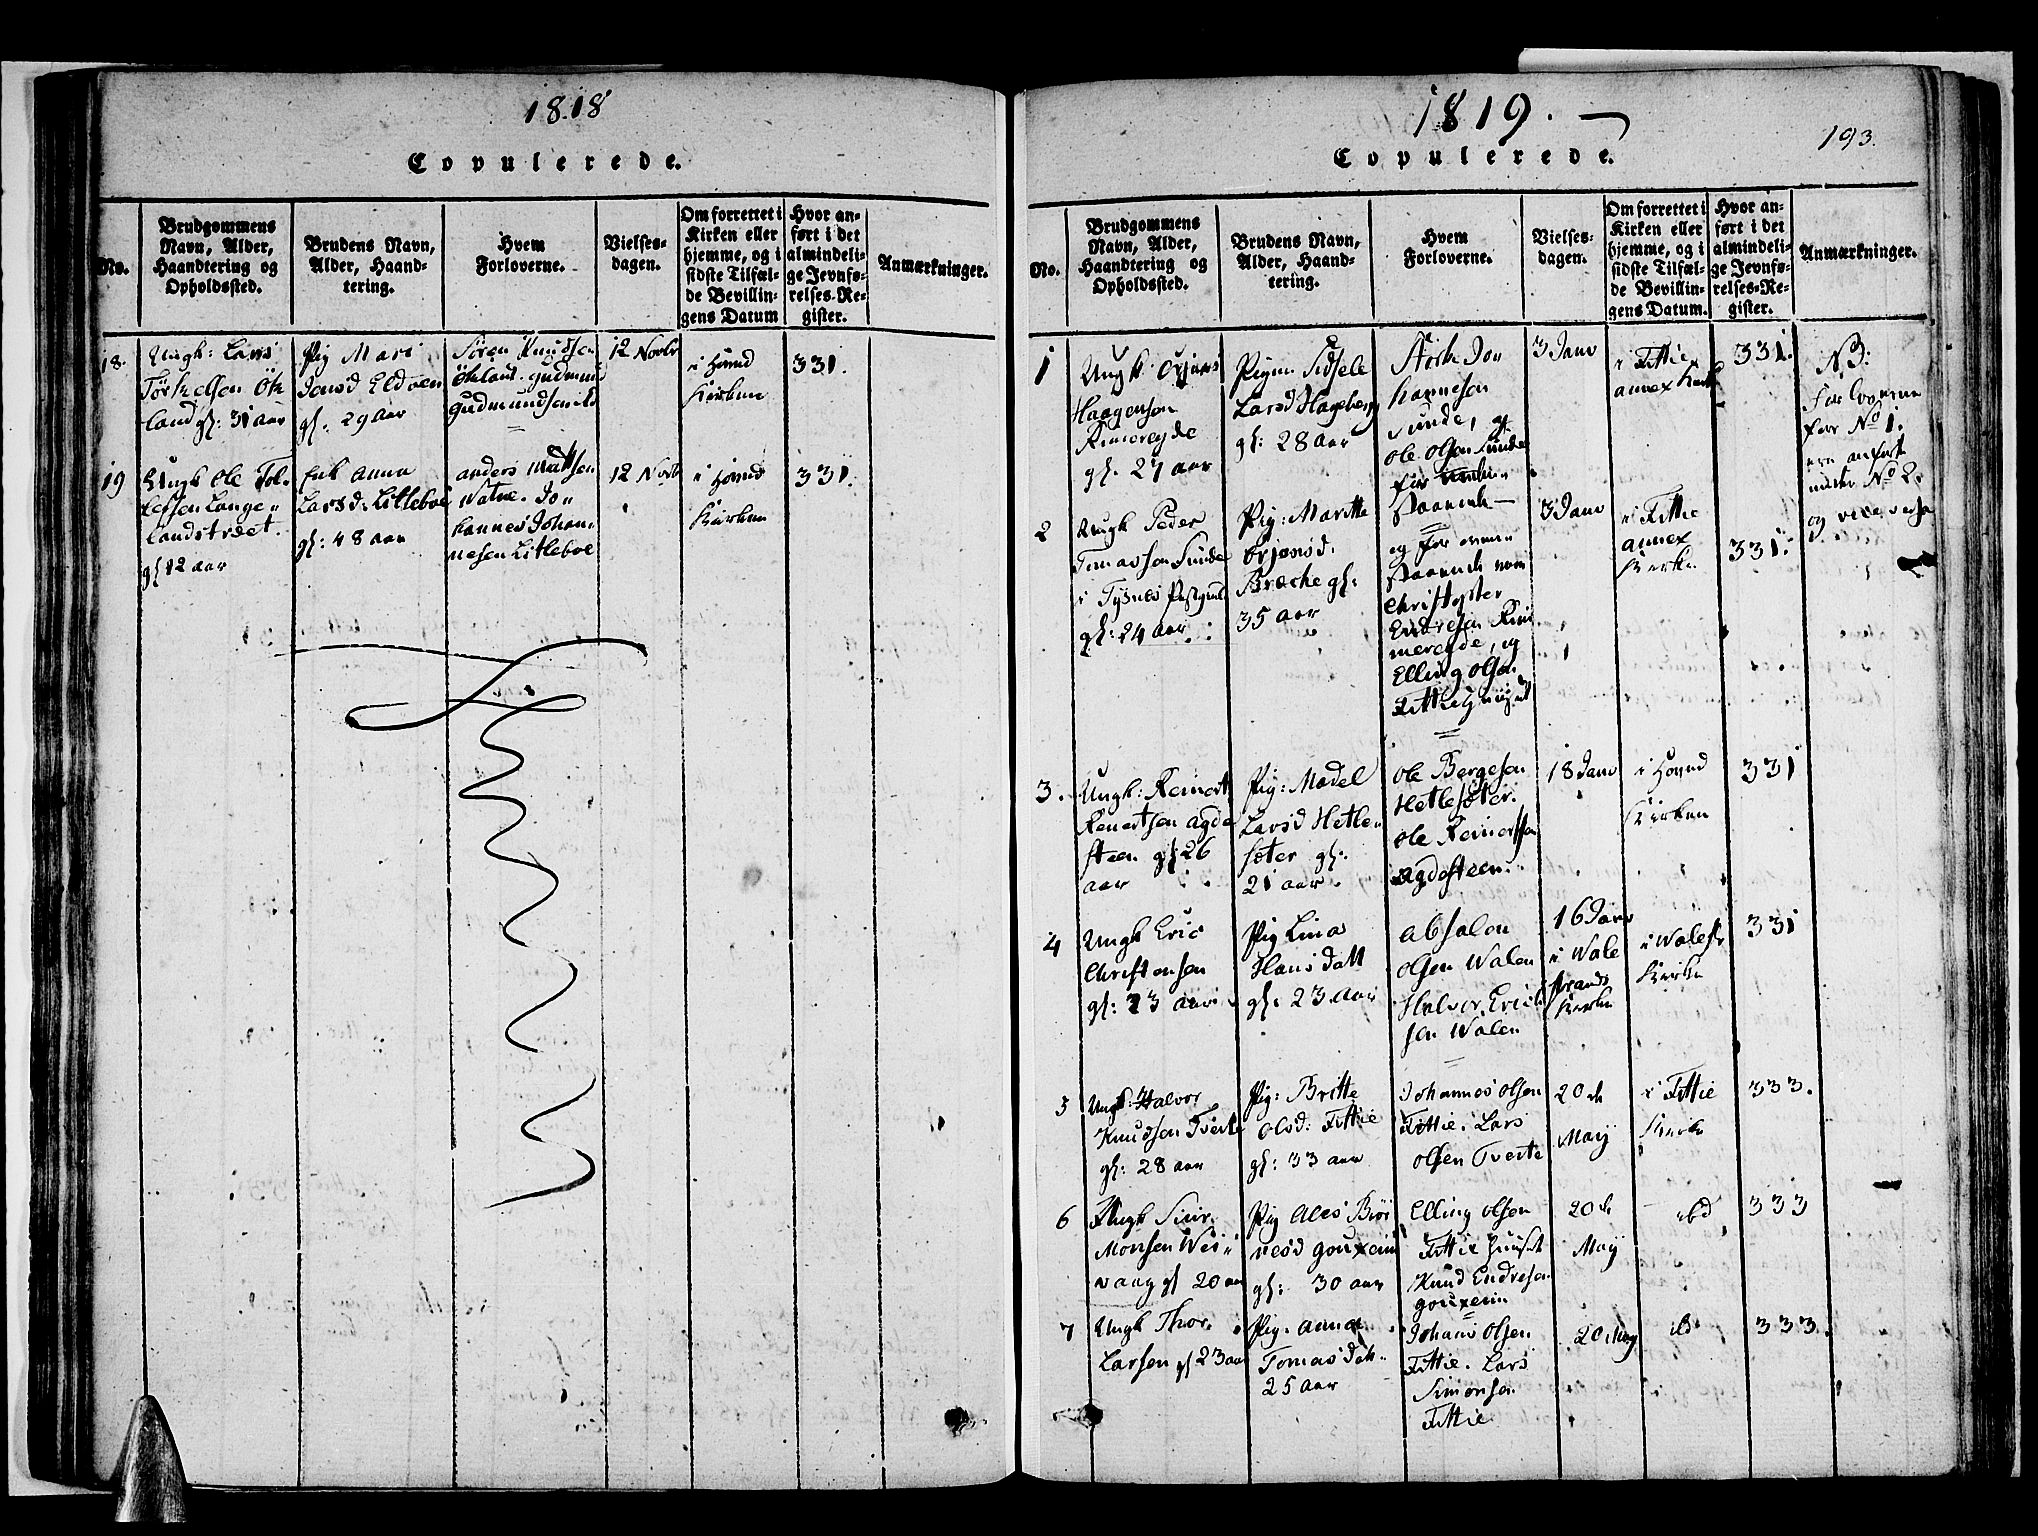 1818
Copulerede.
No.
Brudgommens
Navn, Alder,
Haandtering og
Opholdssted.
Brudens Navn,
Alder, Haand-
tering.
Hvem
Forloverne.
Vielses-
dagen.
Om forrettet i
Kirken eller
hjemme, og i
sidste Tilfæl-
de Bevillin-
gens Datum
Hvor an-
ført i det
almindeli-
ge Jevnfø-
relses-Re-
gister.
Anmærkninger.
18.
Ungk: Lars
Torkelsen Øk
land gl: 31 aar
Pig Mari
Jonsd Eldøen
gl: 29 aar
Sören Knudsen
Ökland. Gudmund
Gudmundsen
12 Novbr
i Hoved
Kirken
331.
19
Ungk Ole Tol-
lefsen Lange-
landstræet.
gl 42 aar
Enk Anna
Larsd: Litleboe
gl: 48 aar
anders
Watne. Jo
hannes Johan-
nesen Litleboe
12 Novb
i Hoved
Kirken
331.
1819.
193.
Copulerede.
No.
Brudgommens
Navn, Alder,
Haandtering og
Opholdssted.
Brudens Navn,
Alder, Haand-
tering.
Hvem
Forloverne.
Vielses-
dagen.
Om forrettet i
Kirken eller
hjemme, og i
sidste Tilfæl-
de Bevillin-
gens Datum.
Hvor an-
ført i det
almindeli-
ge Jevnfø-
relses-Re-
gister.
Anmærkninger.
1
Ungk Örjans
Haagensen
Rimereyde
gl. 27 aar
Pigen Sidsele
Larsd Hageberg
gl: 28 aar
Störke Jo
hannesen
Sunde, og
Ole Olsen Sunde
for
Parende
3 Janv
i Fittie
annex Kirke
331.
NB:
Forloverne
for No 1.
ere anført
under No 2.
og vice versa
2
Ungk Peder
Tomassen Sunde
i Tysnes Præstegield
gl: 24 aar
Pig: Maritte
Örjansd.
Bræcke gl:
35 aar
og for
Parende
Christopher
Endresen Rim
mereyde, og
Elling Olsen
Fittie Huuset
3 Janv
i Fittie
annex
Kirke
331.
3.
Ungk: Reinert
Reinertsen Agde
steen gl 26
aar
Pig: Madel
Larsd Hetle-
sæter gl:
21 aar.
Ole Børgesen
Hetlesæter.
Ole Reinertsen
Agdesteen.
18 Janv
i Hoved
Kirken
331
4
Ungk Eric
Christensen
gl: 23 aar
Pig Lina
Hansdatt
gl: 23 aar
Absalon
Olsen Walen
Halvor Erich
sen Walen
16 Janv
i Wale
strands
Kirke
i Walestr
Kirke
331
5
Ungk: Halvor
Knudsen Tverte
gl: 28 aar
Pig: Britte
Olsd: Fittie
gl: 33 aar
Johannes Olsen
Fittie. Lars
Olsen Tverte
20 de
May
i Fittie
Kirke
333.
6
Ungk Siur
Monsen Wei-
vaag gl 20 aar
Pig Ales Biör
nesd
gl: 30 aar
Elling Olsen
Fittie Huuset
Knud Endresen
20 de
May
ibd
333
7
Ungk Thor
Larsen gl 23 aar
Pig. Anna
Tomasdat.
25 aar
Johans Olsen
Fittie. Lars
Simonsen
Fittie
20 May
ibd
333.